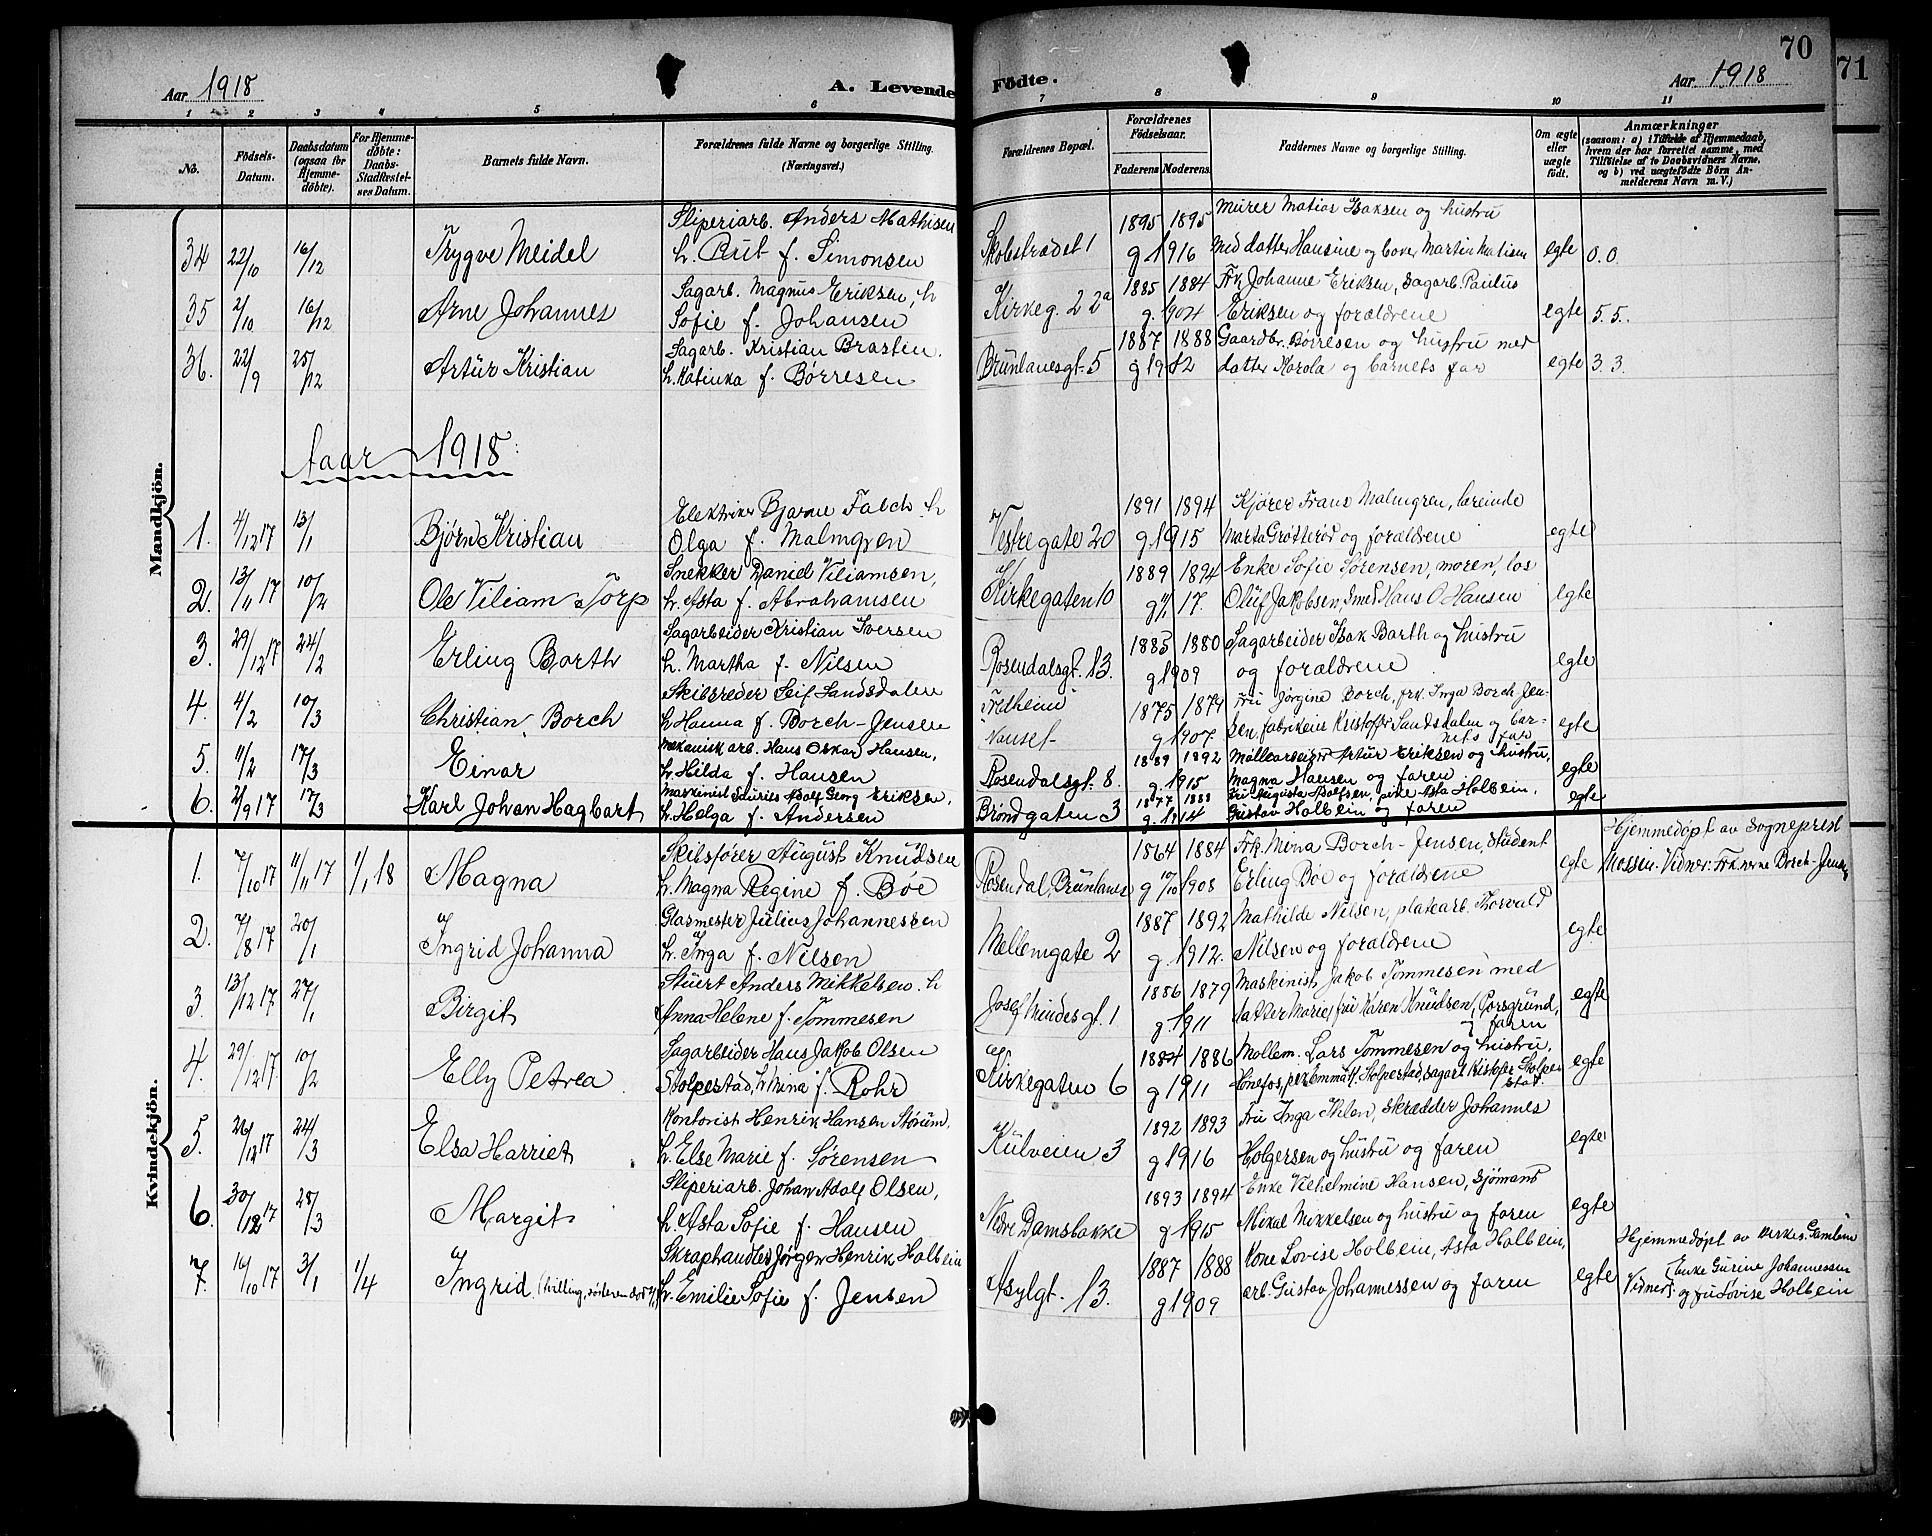 70
71
Aar 1918
A. Levende Födte.
Aar 1918
1 2 3 4 5 6 7 8 9 10 11
No.
Fødsels-
Datum.
Daabsdatum
(ogsaa for
Hjemme-
døbte).
For Hjemme-
døbte:
Daabs-
Stadfæstel-
ses Datum.
Barnets fulde Navn.
Forældrenes fulde Navne og borgerlige Stilling.
(Næringsvei.)
Forældrenes Bopæl.
Forældrenes
Fødselsaar.
Faderens. Moderens.
Faddernes Navne og borgerlige Stilling.
Om ægte
eller
uægte
født.
Anmærkninger
(saasom: a) i Tilfælde af Hjemmedaab,
hvem der har forrettet samme, med
Tilføielse af to Daabsvidners Navne,
og b) ved uægtefødte Børn An-
melderens Navn m. V.)
Mandkjön.
Sliperiarb. Anders Mathisen 1895 1895 Murer Matias Isaksen og hustru
34 22/10 16/12 Trygve Meidel h. Rut f. Simonsen Skolestrædet 1 g. 1916 med datter Hansine og Martin Matisen egte 0.0.
Sagarb. Magnus Eriksen, h 1885 1884 Frk. Johanne Eriksen, sagarb. Paulus
35 2/10 16/12 Arne Johannes Sofie f. Johansen Kirkeg. 22a g. 1904 Eriksen og forældrene egte 5.5.
Sagarb. Kristian Brastin. 1887 1888 Gaardbr. Børresen og hustru med
36. 22/9 25/12 Artur Kristian h. Katinka f. Børresen Brunlanesgt. 5 g 1912 datter Karola og barnets far egte 3.3.
Aar 1918
Elektriker Bjarne Falch. h 1891 1894 Kjører Frans Malmgren, løreinde
1. 4/12 17 13/1 Bjørn Kristian Olga f. Malmgren Vestregate 20 g. 1915 Marta Grøtterød og forældrene egte
Snekker Daniel Viliamsen, 1889 1894 Enke Sofie Sørensen, moren, los
2. 13/11 17 10/2 Ole Viliam Torp h. Asta f. Abrahamsen Kirkegaten 10 g 17. Oluf Jakobsen, Smed Hans O Hansen egte
Sagarbeider Kristian Iversen 1883 1880 Sagarbeider Isak Barth og hustru
3. 29/12 17 24/2 Erling Barth h. Martha f. Nilsen Rosendalsgt. 13. g 1909 og forældrene egte
Skibsreder Leif Sandsdalen Fredheim 1875 1874 Fru Jørgine Borch, frk. Inga Borch Jen-
4. 4/2 10/3 Christian Borch h Hanna f. Borch-Jensen Nanset g 1907. sen, fabrikeier Kristoffr Sandsdalen og bar-
nets far egte
Mekanisk arb. Hans Oskar Hansen, 1889 1892 Møllearbeider Artur Eriksen og hustru,
5. 11/2 17/3 Einar h. Hilda f. Hansen Rosendalsgt. 8 g. 1915 Magna Hansen og faren egte
Maskinist Laurits Adolf Georg Eriksen, 1877 1888 Fru Augusta Adolfsen, pike Asta Holbein,
6. 2/9 17 17/3 Karl Johan Hagbart h. Helga f. Andersen Brøndgaten 3 g. 1914 Gustav Holbein og faren egte
Kvindekjön.
Skibsfører August Knudsen 1864 1884 Frk. Mina Borch-Jensen, student Hjemmedøpt av sogneprest
1. 7/10 17 11/11 17 1/1 18 Magna h. Magna Regine f. Bøe Rosendal, Brunlanes g 1908 Erling Bøe og forældrene egte Mossin. Vidner: Borch-Jensen
Glasmester Julius Johannessen 1887 1892 Mathilde Nilsen, platearb. Thorvald
2. 7/8 17 20/1 Ingrid Johanna h. Inga f. Nilsen Mellemgate 2 g. 1912. Nilsen og forældrene egte
Stuert Anders Mikkelsen. h 1886 1879 Maskinist Jakob Tommesen med
3. 13/12 17 27/1 Birgit Anna Helene f. Tommesen Josef Mindesgt. 1 g. 1911 datter Marie, fru Karen Knudsen, Porsgrund,
og faren egte
Sagarbeider Hans Jakob Olsen 1884 1886 Møllem. Lars Tommesen og hustru,
4. 29/12 17 10/2 Elly Petrea Stolpestad, h. Mina f. Rohr Kirkegaten 6 g 1911 Hønefos, pike Emma Stolpestad, sagarb Kristofer Stolpe-
stad. egte
Kontorist Henrik Hansen Størum, 1892 1893 Fru Inga Ihlen, skrædder Johannes
5. 26/12 17 24/3 Elsa Harriet h. Else Marie f. Sørensen Kulveien 3 g 1916 Holgersen og hustru og faren egte
Sliperiarb. Johan Adolf Olsen, 1893 1894 Enke Vilhelmine Hansen, Sjømand
6. 30/12 17 28/3 Margit h. Asta Sofie f. Hansen Nedre Damsbakke g 1915 Mikal Mikkelsen og hustru og faren egte
Skraphandler Jørgen Henrik Holbein 1887 1888 Kone Lovise Holbein, Asta Holbein, Hjemmedøpt av
7. 16/10 17 3/1 1/4 Ingrid (tvilling, h. Emilie Sofie f. Jensen Asylgt. 13. g 1909 arb. Gustav Johannessen og faren egte Vidner: Enke Gurine Johannessen
og fru Lovise Holbein